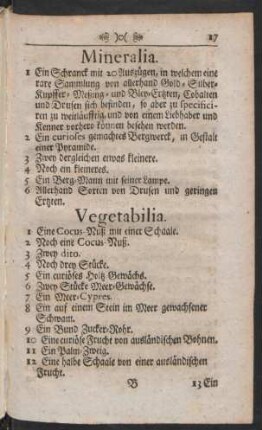 17
Mineralia.
1 Ein Schranck mit 20 Auszügen, in welchem eine
rare Sammlung von allerhand Gold- Silber-
Kupffer- Meßing- und Bley-Ertzten, Cobalten
und Drusen sich befinden, so aber zu specifici-
ren zu weitläufftig und von einem Liebhaber und
Kenner vorhero können besehen werden.
2 Ein curioses gemachtes Bergwerck, in Gestalt
einer Pyramide.
3 Zwey dergleichen etwas kleinere.
4 Noch ein kleineres.
5 Ein Berg-Mann mit seiner Lampe.
6 Allerhand Sorten von Drusen und geringen
Ertzten.
Vegetabilia.
1 Eine Cocus-Nuß mit einer Schaale.
2 Noch eine Cocus-Nuß.
3 Zwey dito.
4 Noch drey Stücke.
5 Ein curiöses Holtz Gewächs.
6 Zwey Stücke Meer-Gewächse.
7 Ein Meer-Cypres.
8 Ein auf einem Stein im Meer gewachsener
Schwam.
9 Ein Bund Zucker-Rohr.
10 Eine curiöse Frucht von ausländischen Bohnen.
11 Ein Palm-Zweig.
12 Eine halbe Schaale von einer ausländischen
Frucht.
B 13 Ein